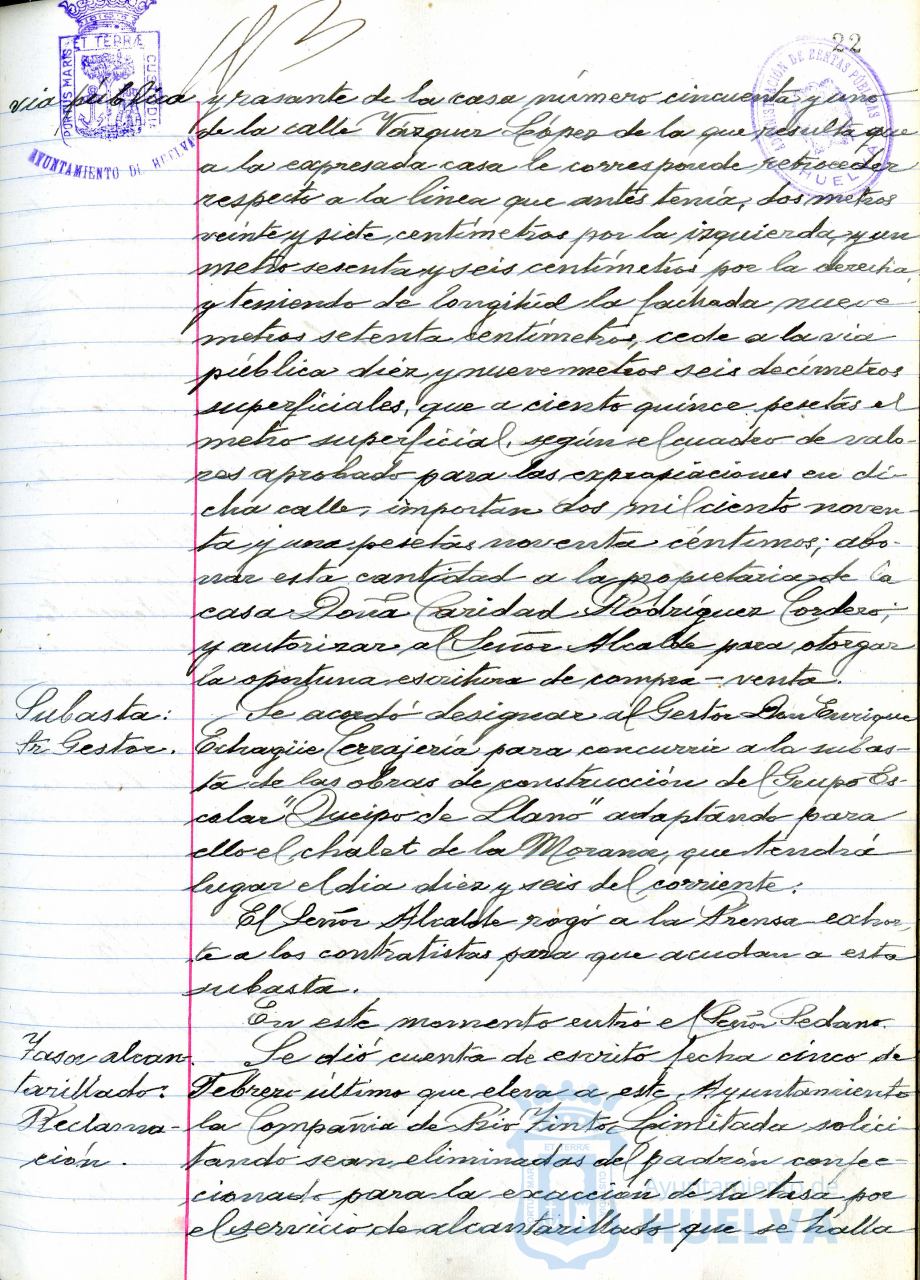 22
ET TERRÆ
PORTUS MARIS
CUSTODIA
AYUNTAMIENTO DE HUELVA
ADMINISTRACIÓN DE RENTAS PÚBLICAS
HUELVA
via pública y rasante de la casa número cincuenta y uno
de la calle Vázquez López de la que resulta que
a la expresada casa le corresponde retroceder
respecto a la línea que antes tenía, dos metros
veinte y siete centímetros por la izquierda, y un
metro sesenta y seis centímetros por la derecha
y teniendo de longitud la fachada nueve
metros setenta centímetros, cede a la via
pública diez y nueve metros seis decímetros
superficiales, que a ciento quince pesetas el
metro superficial, según el cuadro de valo-
res aprobado para las expropiaciones en di-
cha calle, importan dos mil ciento noven-
ta y una pesetas noventa céntimos; abo-
nar esta cantidad a la propietaria de la
casa Doña Caridad Rodríguez Cordero;
y autorizar al Señor Alcalde para otorgar
la oportuna escritura de compra-venta.
Subasta:
Sr Gestor.
Se acordó designar al Gestor Don Enrique
Echagüe Cerrajería para concurrir a la subas-
ta de las obras de construcción del Grupo Es-
colar "Queipo de Llano" adaptando para
ello el chalet de la Morana, que tendrá
lugar el día diez y seis del corriente.
El Señor Alcalde rogó a la Prensa exhor-
te a los contratistas para que acudan a esta
subasta.
En este momento entró el Señor Sedano.
Tasa alcan-
tarillado:
Reclama-
ción.
Se dió cuenta de escrito fecha cinco de
Febrero último que eleva a este Ayuntamiento
la Compañia de Rio Tinto Limitada solici-
tando sean eliminadas del padrón confec-
cionado para la exacción de la tasa por
el servicio de alcantarillado que se halla
ET TERRÆ
Ayuntamiento de
HUELVA